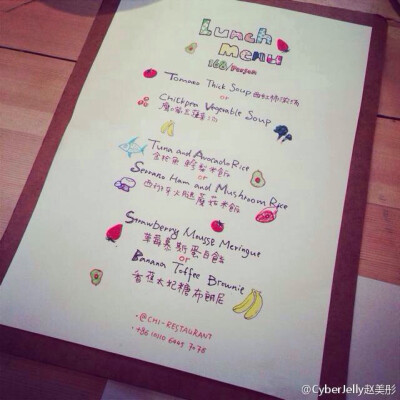 Lunch
Menu
168/Person
Tomato Thick Soup 西红柿浓汤
or
Chickpea Vegetable Soup
Tuna and Avocado Rice
金枪鱼 鳄梨米饭
or
Serrano Ham and Mushroom Rice
西班牙火腿蘑菇米饭
Strawberry Mousse Meringue
草莓慕斯蛋白饼
or
Banana Toffee Brownie
香蕉太妃糖布朗尼
@CHI-RESTAURANT
+86 (0)10 6445 7076
@CyberJelly赵美彤